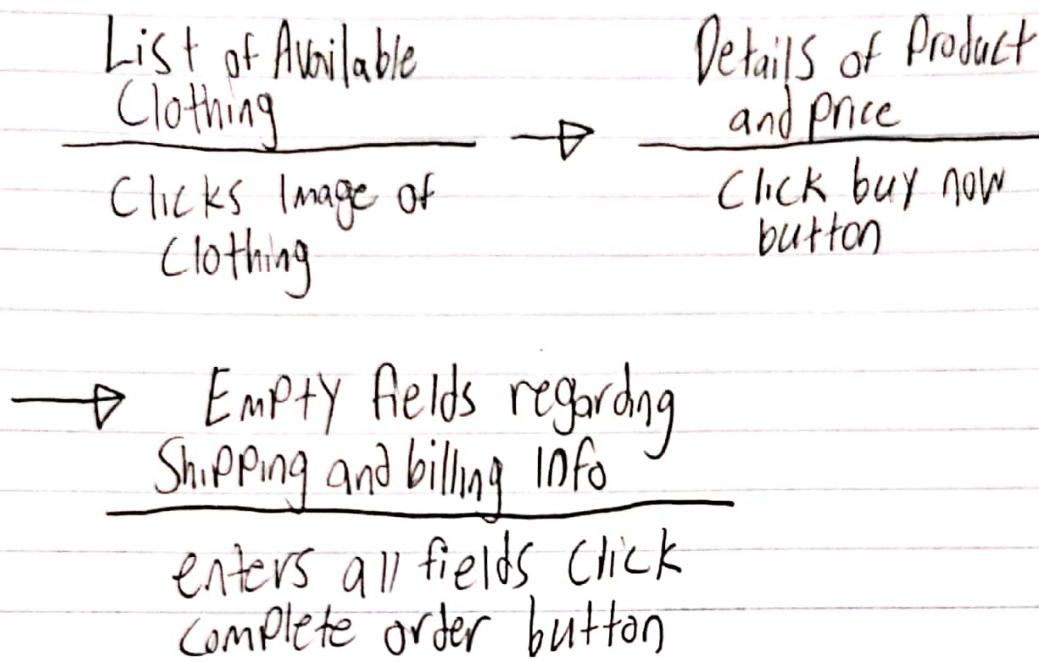 List of Available
Clothing
Clicks Image of
Clothing
Details of Product
and price
Click buy now
button
Empty fields regarding
Shipping and billing info
enters all fields Click
complete order button